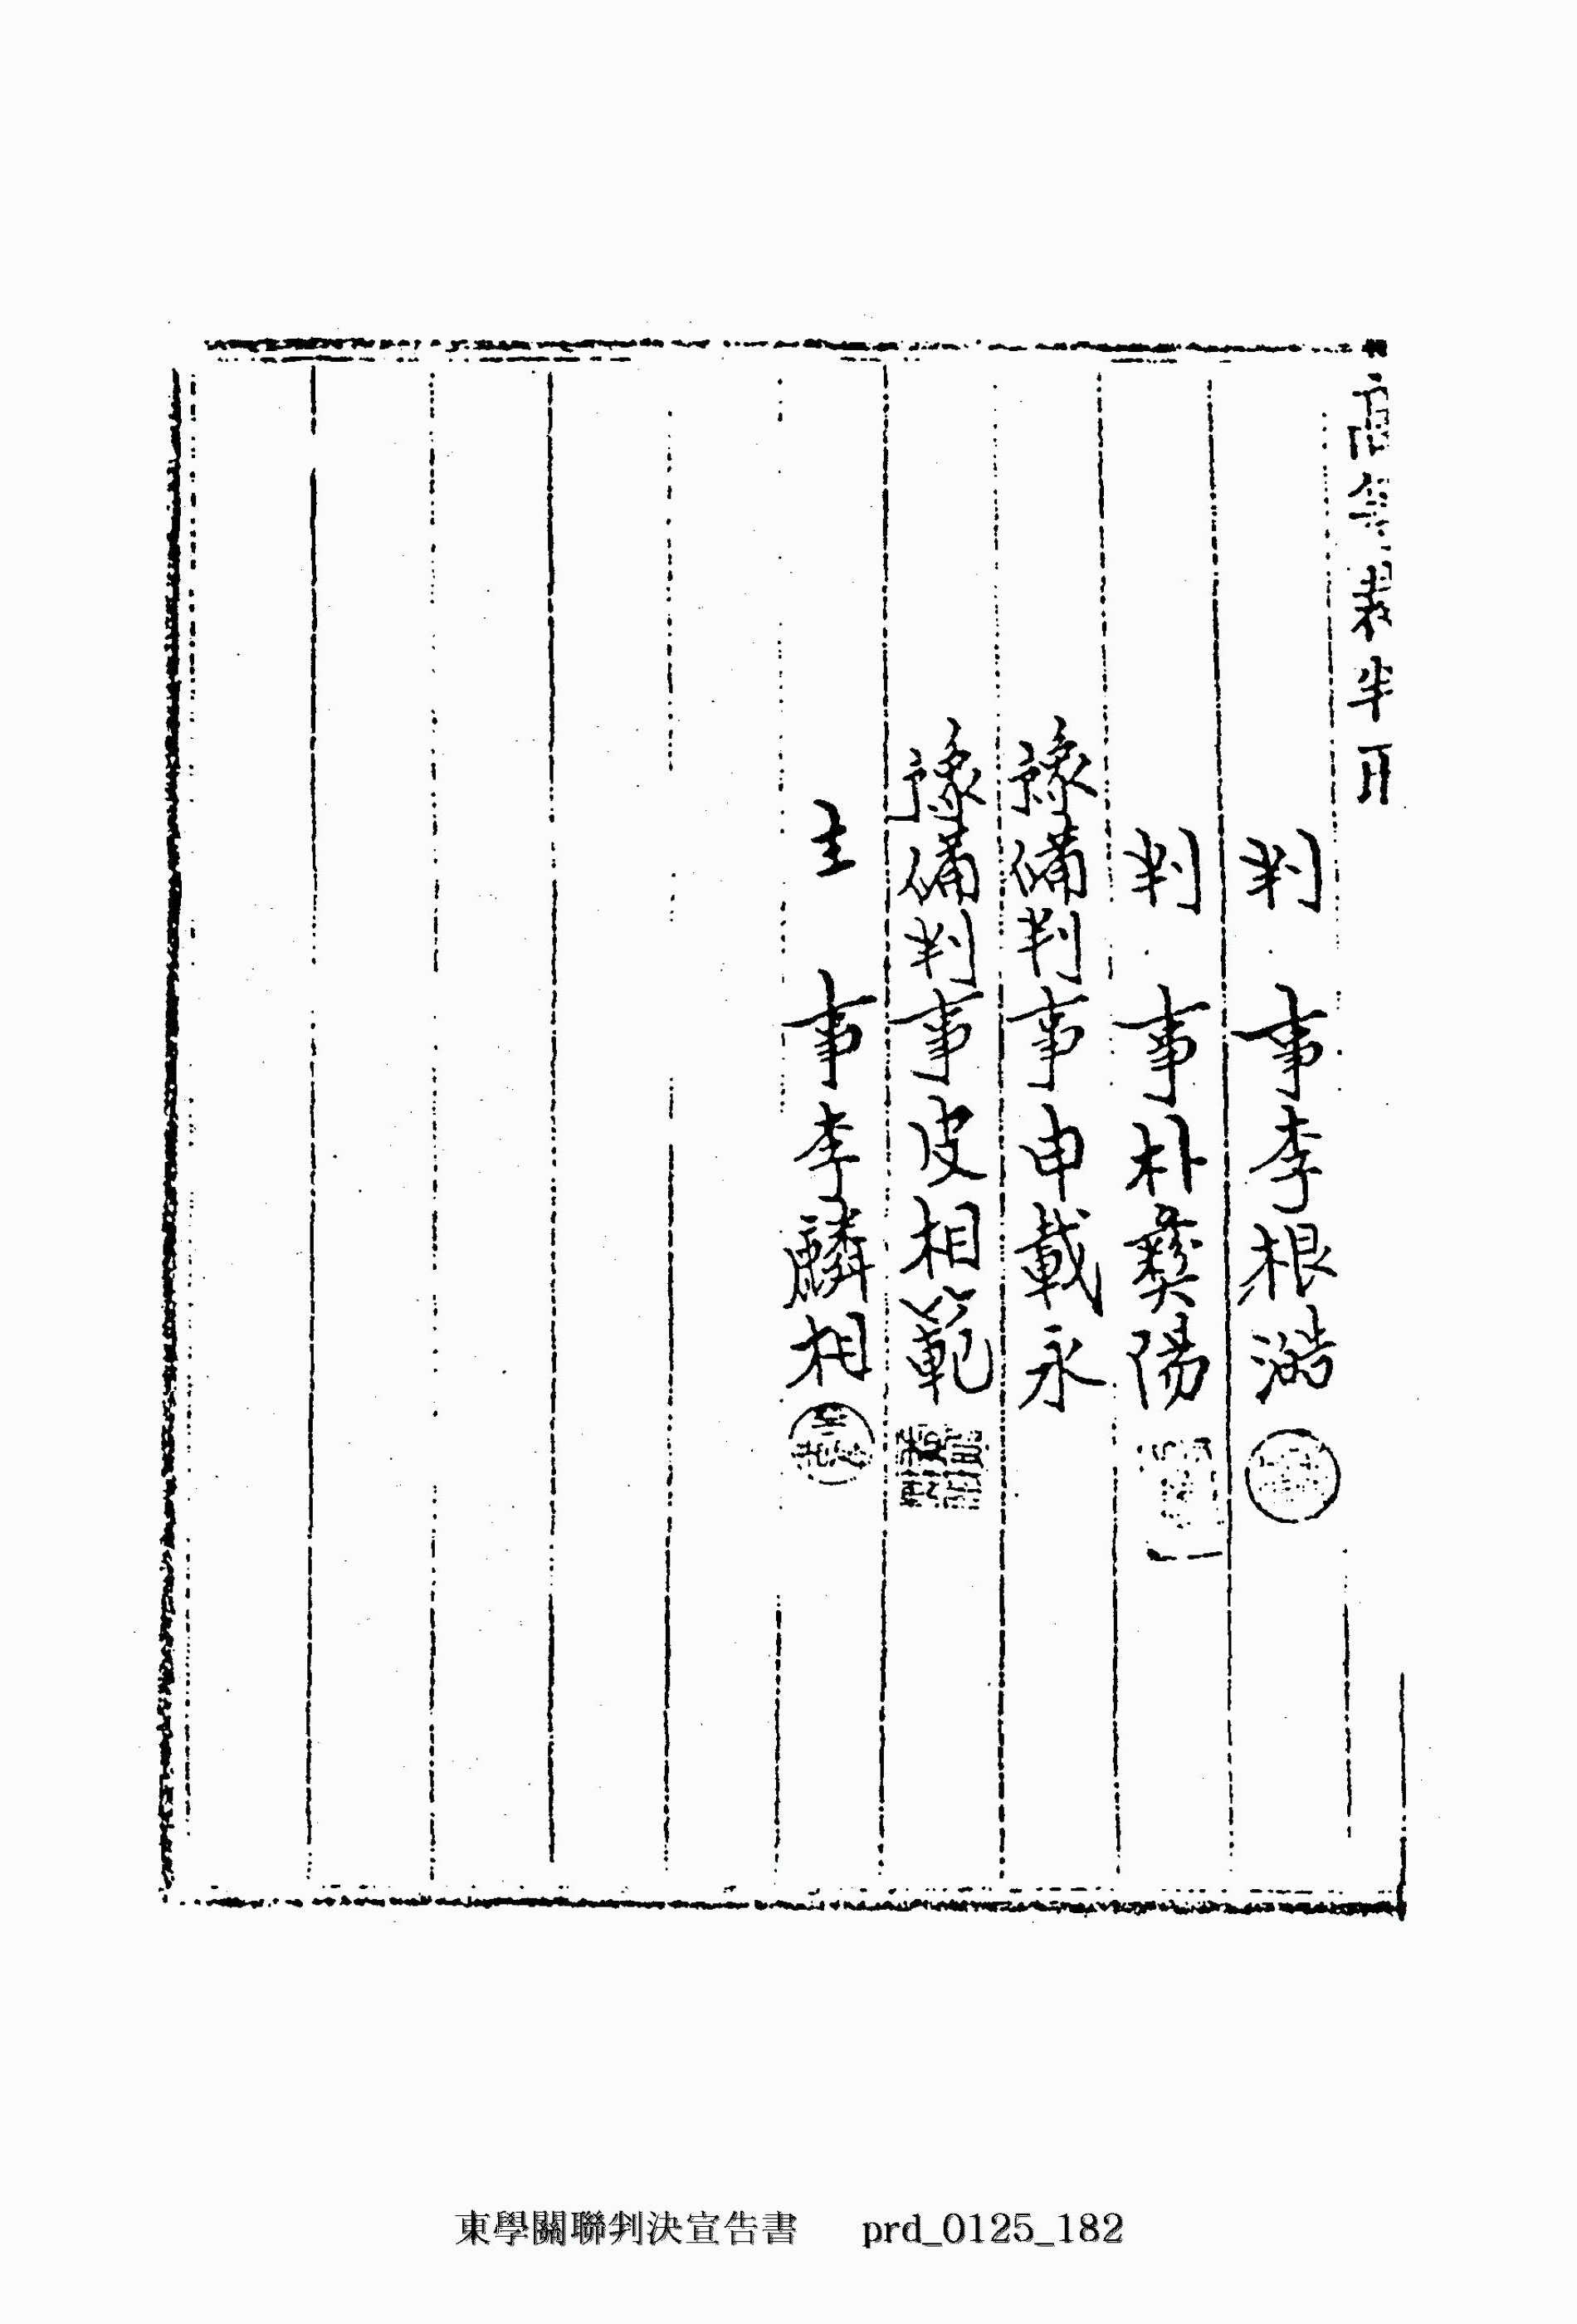 高等裁判所
判事李根澔
判事朴彝陽
豫備判事申載永
豫備判事皮相範
主事李麟相
東學關聯判決宣告書 prd_0125_182